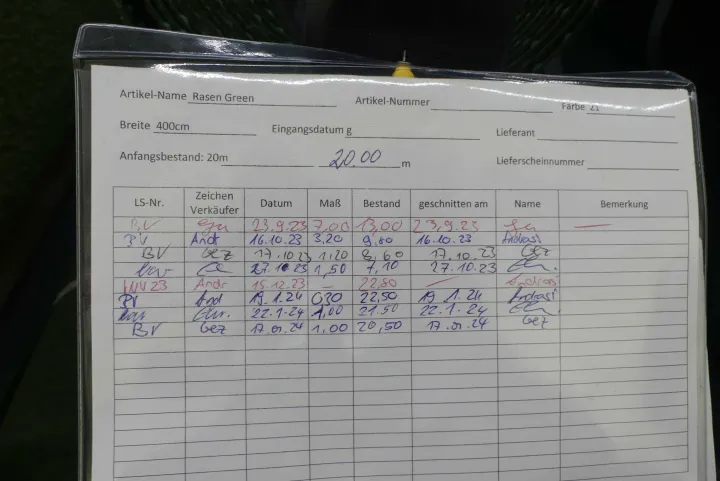 Artikel-Name Rasen Green Artikel-Nummer Farbe 21
Breite 400cm Eingangsdatum g Lieferant
Anfangsbestand: 20m 20.00 m Lieferscheinnummer
LS-Nr. Zeichen Verkäufer Datum Maß Bestand geschnitten am Name Bemerkung
23.9.23 7,00 13,00 23.9.23
BV Andr 16.10.23 3,20 9,80 16.10.23
BV Gez 17.10.23 1,20 8,60 17.10.23 Gez
27.10.23 1,50 7,10 27.10.23
INV 23 Andr 15.12.23 — 22,80
BV And 19.1.24 030 22,50 19.1.24
22.1.24 1,00 21.50 22.1.24
BV Gez 17.01.24 1,00 20,50 17.01.24 Gez